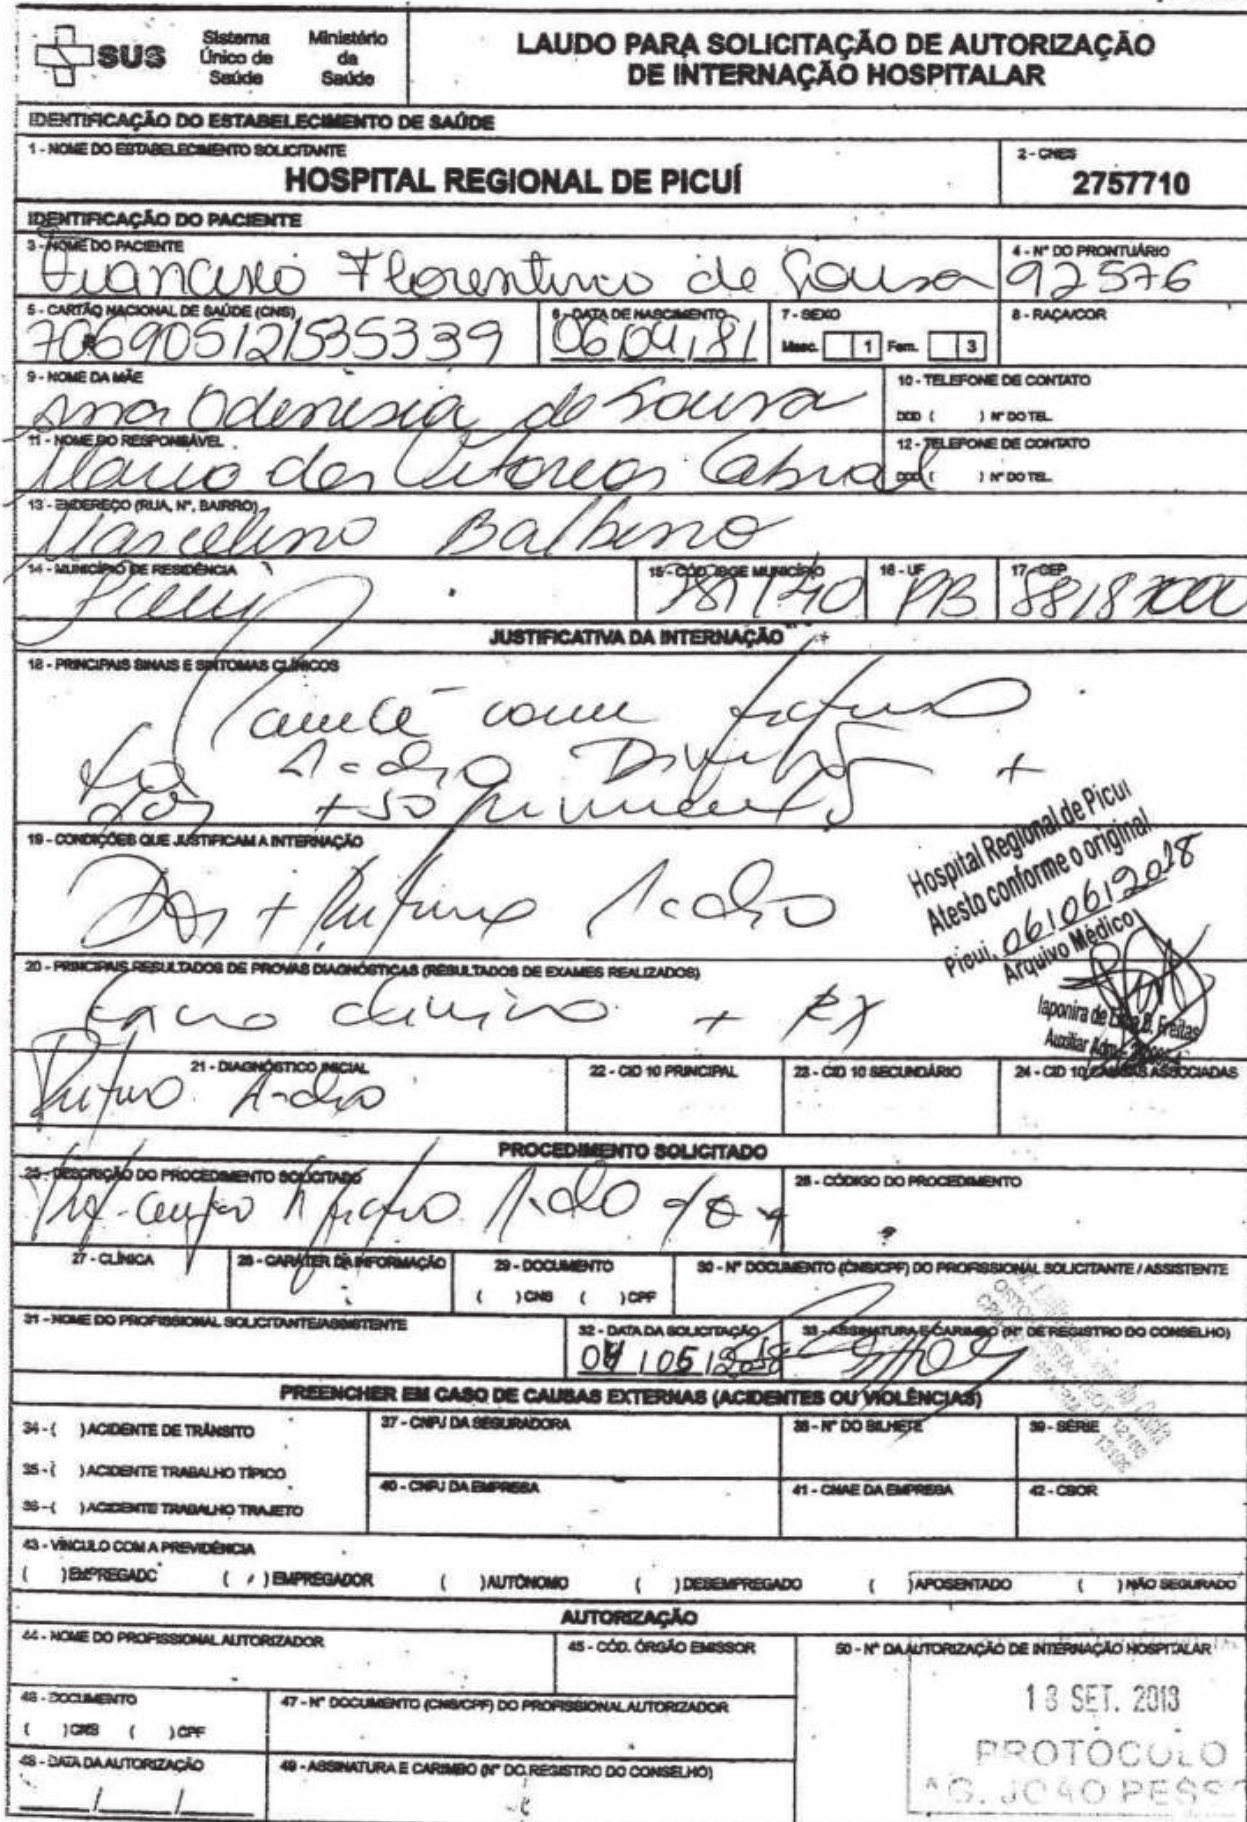 SUS
Sistema Único de Saúde
Ministério da Saúde
LAUDO PARA SOLICITAÇÃO DE AUTORIZAÇÃO
DE INTERNAÇÃO HOSPITALAR
IDENTIFICAÇÃO DO ESTABELECIMENTO DE SAÚDE
1 - NOME DO ESTABELECIMENTO SOLICITANTE
HOSPITAL REGIONAL DE PICUÍ
2 - CNES
2757710
IDENTIFICAÇÃO DO PACIENTE
3 - NOME DO PACIENTE
Francisco Florentino de Sousa
4 - N° DO PRONTUÁRIO
92576
5 - CARTÃO NACIONAL DE SAÚDE (CNS)
706905121535339
6 - DATA DE NASCIMENTO
06/04/81
7 - SEXO
Masc. 1 Fem. 3
8 - RAÇA/COR
9 - NOME DA MÃE
Ana Odenisia de Sousa
10 - TELEFONE DE CONTATO
DDD ( ) N° DO TEL.
11 - NOME DO RESPONSÁVEL
Maria das Vitorias Cabral
12 - TELEFONE DE CONTATO
DDD ( ) N° DO TEL.
13 - ENDEREÇO (RUA, N°, BAIRRO)
Marcelino Balbino
14 - MUNICÍPIO DE RESIDÊNCIA
Picuí
15 - CÓD. IBGE MUNICÍPIO
16 - UF
PB
17 - CEP
JUSTIFICATIVA DA INTERNAÇÃO
18 - PRINCIPAIS SINAIS E SINTOMAS CLÍNICOS
com
+
dor +
19 - CONDIÇÕES QUE JUSTIFICAM A INTERNAÇÃO
Dor +
Hospital Regional de Picuí
Atesto conforme o original
Picuí, 06/06/2018
Arquivo Médico
20 - PRINCIPAIS RESULTADOS DE PROVAS DIAGNÓSTICAS (RESULTADOS DE EXAMES REALIZADOS)
+ RX
Iaponira de B. Freitas
Auxiliar Adm.
21 - DIAGNÓSTICO INICIAL
22 - CID 10 PRINCIPAL
23 - CID 10 SECUNDÁRIO
24 - CID 10 CAUSAS ASSOCIADAS
PROCEDIMENTO SOLICITADO
25 - DESCRIÇÃO DO PROCEDIMENTO SOLICITADO
26 - CÓDIGO DO PROCEDIMENTO
27 - CLÍNICA
28 - CARÁTER DA INFORMAÇÃO
29 - DOCUMENTO
( ) CNS ( ) CPF
30 - N° DOCUMENTO (CNS/CPF) DO PROFISSIONAL SOLICITANTE / ASSISTENTE
31 - NOME DO PROFISSIONAL SOLICITANTE/ASSISTENTE
32 - DATA DA SOLICITAÇÃO
33 - ASSINATURA E CARIMBO (N° DE REGISTRO DO CONSELHO)
PREENCHER EM CASO DE CAUSAS EXTERNAS (ACIDENTES OU VIOLÊNCIAS)
34 - ( ) ACIDENTE DE TRÂNSITO
35 - ( ) ACIDENTE TRABALHO TÍPICO
36 - ( ) ACIDENTE TRABALHO TRAJETO
37 - CNPJ DA SEGURADORA
38 - N° DO BILHETE
39 - SÉRIE
40 - CNPJ DA EMPRESA
41 - CNAE DA EMPRESA
42 - CBOR
43 - VÍNCULO COM A PREVIDÊNCIA
( ) EMPREGADO ( ) EMPREGADOR ( ) AUTÔNOMO ( ) DESEMPREGADO ( ) APOSENTADO ( ) NÃO SEGURADO
AUTORIZAÇÃO
44 - NOME DO PROFISSIONAL AUTORIZADOR
45 - CÓD. ÓRGÃO EMISSOR
50 - N° DA AUTORIZAÇÃO DE INTERNAÇÃO HOSPITALAR
46 - DOCUMENTO
( ) CNS ( ) CPF
47 - N° DOCUMENTO (CNS/CPF) DO PROFISSIONAL AUTORIZADOR
48 - DATA DA AUTORIZAÇÃO
49 - ASSINATURA E CARIMBO (N° DO REGISTRO DO CONSELHO)
18 SET. 2018
PROTOCOLO
AG. JOÃO PESSO